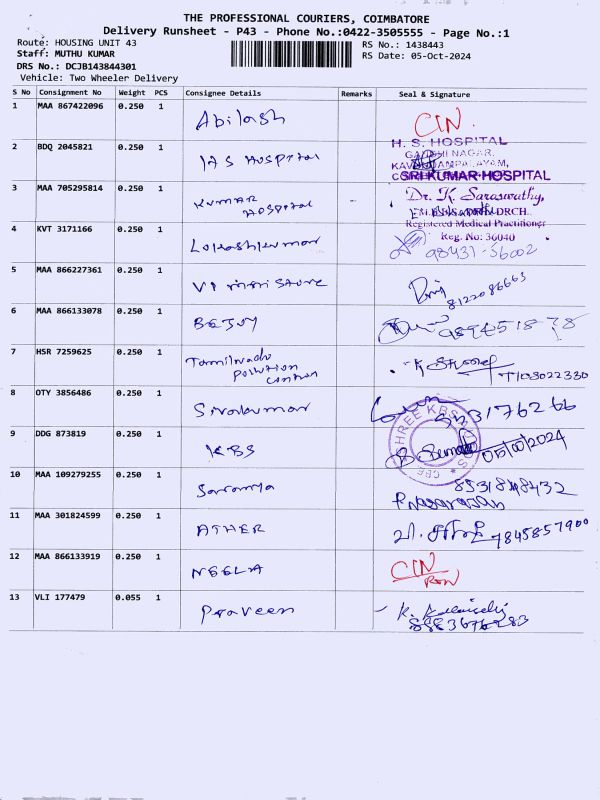 THE PROFESSIONAL COURIERS, COIMBATORE
Delivery Runsheet - P43 - Phone No.:0422-3505555 - Page No.:1
Route: HOUSING UNIT 43
RS No.: 1438443
Staff: MUTHU KUMAR
RS Date: 05-Oct-2024
DRS No.: DCJB143844301
Vehicle: Two Wheeler Delivery
S No Consignment No Weight PCS Consignee Details Remarks Seal & Signature
1 MAA 867422096 0.250 1 Abilash CIN
2 BDQ 2045821 0.250 1 HOSPITAL
H. S. HOSPITAL
GANDHI NAGAR,
3 MAA 705295814 0.250 1 KUMAR HOSPITAL -
SRI KUMAR HOSPITAL
Dr. K. Saraswathy,
Registered Medical Practitioner
Reg. No: 36040
4 KVT 3171166 0.250 1 Lokeshkumar 98431-56002
5 MAA 866227361 0.250 1 STORE 8122086663
6 MAA 866133078 0.250 1 BEJOY
7 HSR 7259625 0.250 1 Tamilnadu Pollution Control T103022330
8 OTY 3856486 0.250 1 Sivakumar
9 DDG 873819 0.250 1 KBS
10 MAA 109279255 0.250 1 Saranya
11 MAA 301824599 0.250 1 ATHER 7845857900
12 MAA 866133919 0.250 1 NEELA CIN
13 VLI 177479 0.055 1 Praveen